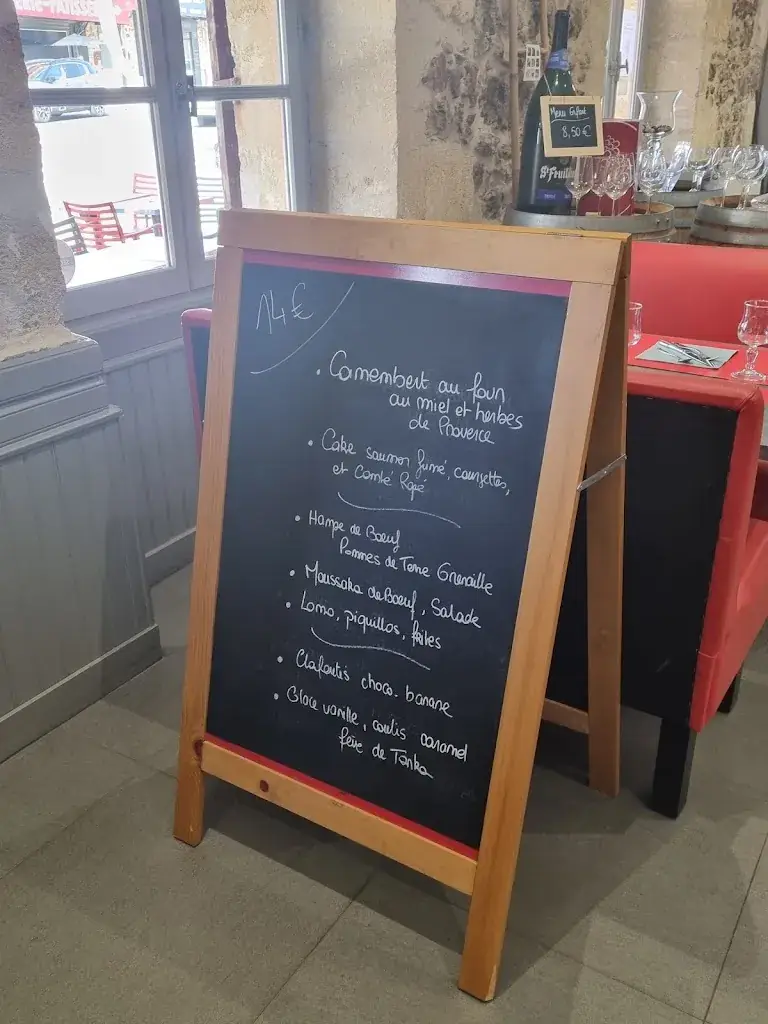 PATISSERIE
Menu Enfant
8,50 €
St Feuillien
14€
• Camembert au four
au miel et herbes
de Provence
• Cake saumon fumé, courgettes,
et Comté Rapé
• Hampe de Bœuf
Pommes de Terre Grenaille
• Moussaka de Bœuf, Salade
• Lomo, piquillos, frites
• Clafoutis choco-banane
• Glace vanille, coulis caramel
fève de Tonka